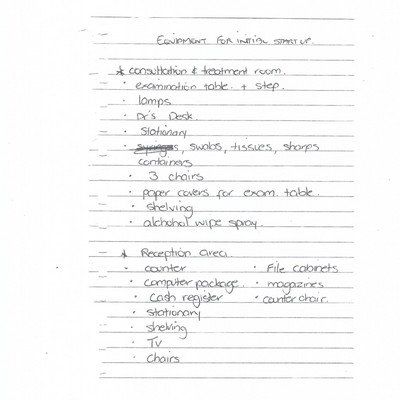 EQUIPMENT FOR INITIAL START UP.
* consultation & treatment room.
· examination table + step.
· lamps
· Dr's Desk.
· Stationary
· swabs, tissues, sharps
containers
· 3 chairs
· paper covers for exam. table.
· shelving
· alchohol wipe spray.
* Reception area.
· counter
· computer package.
· cash register
· stationary
· shelving
· TV
· chairs
· File cabinets
· magazines
· counter chair.